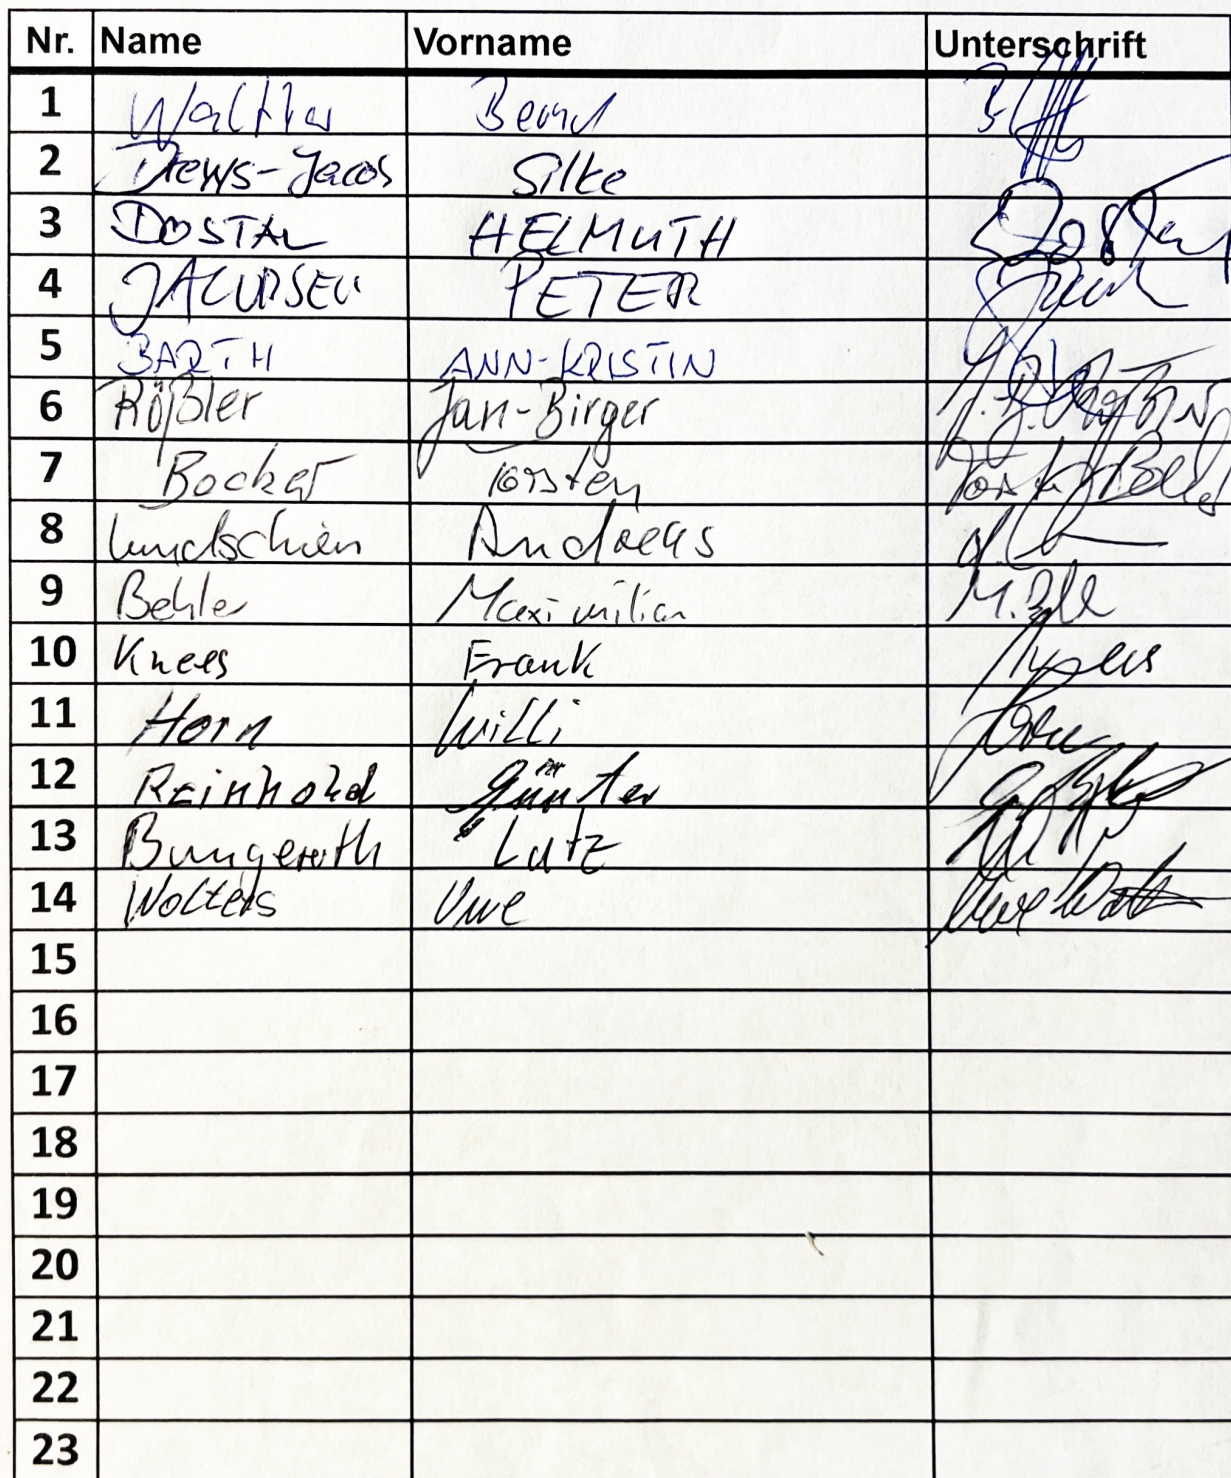 Nr. Name Vorname Unterschrift
1 Walther Bernd
2 Drews-Jacobs Silke
3 DOSTAL HELMUTH Dostal
4 JACOBSEN PETER
5 BARTH ANN-KRISTIN
6 Rößler Jan-Birger
7 Becker Torsten
8 Andreas
9 Behle Maximilian
10 Knees Frank
11 Horn Willi
12 Reinhold Günter
13 Bungeroth Lutz
14 Wolters Uwe
15
16
17
18
19
20
21
22
23